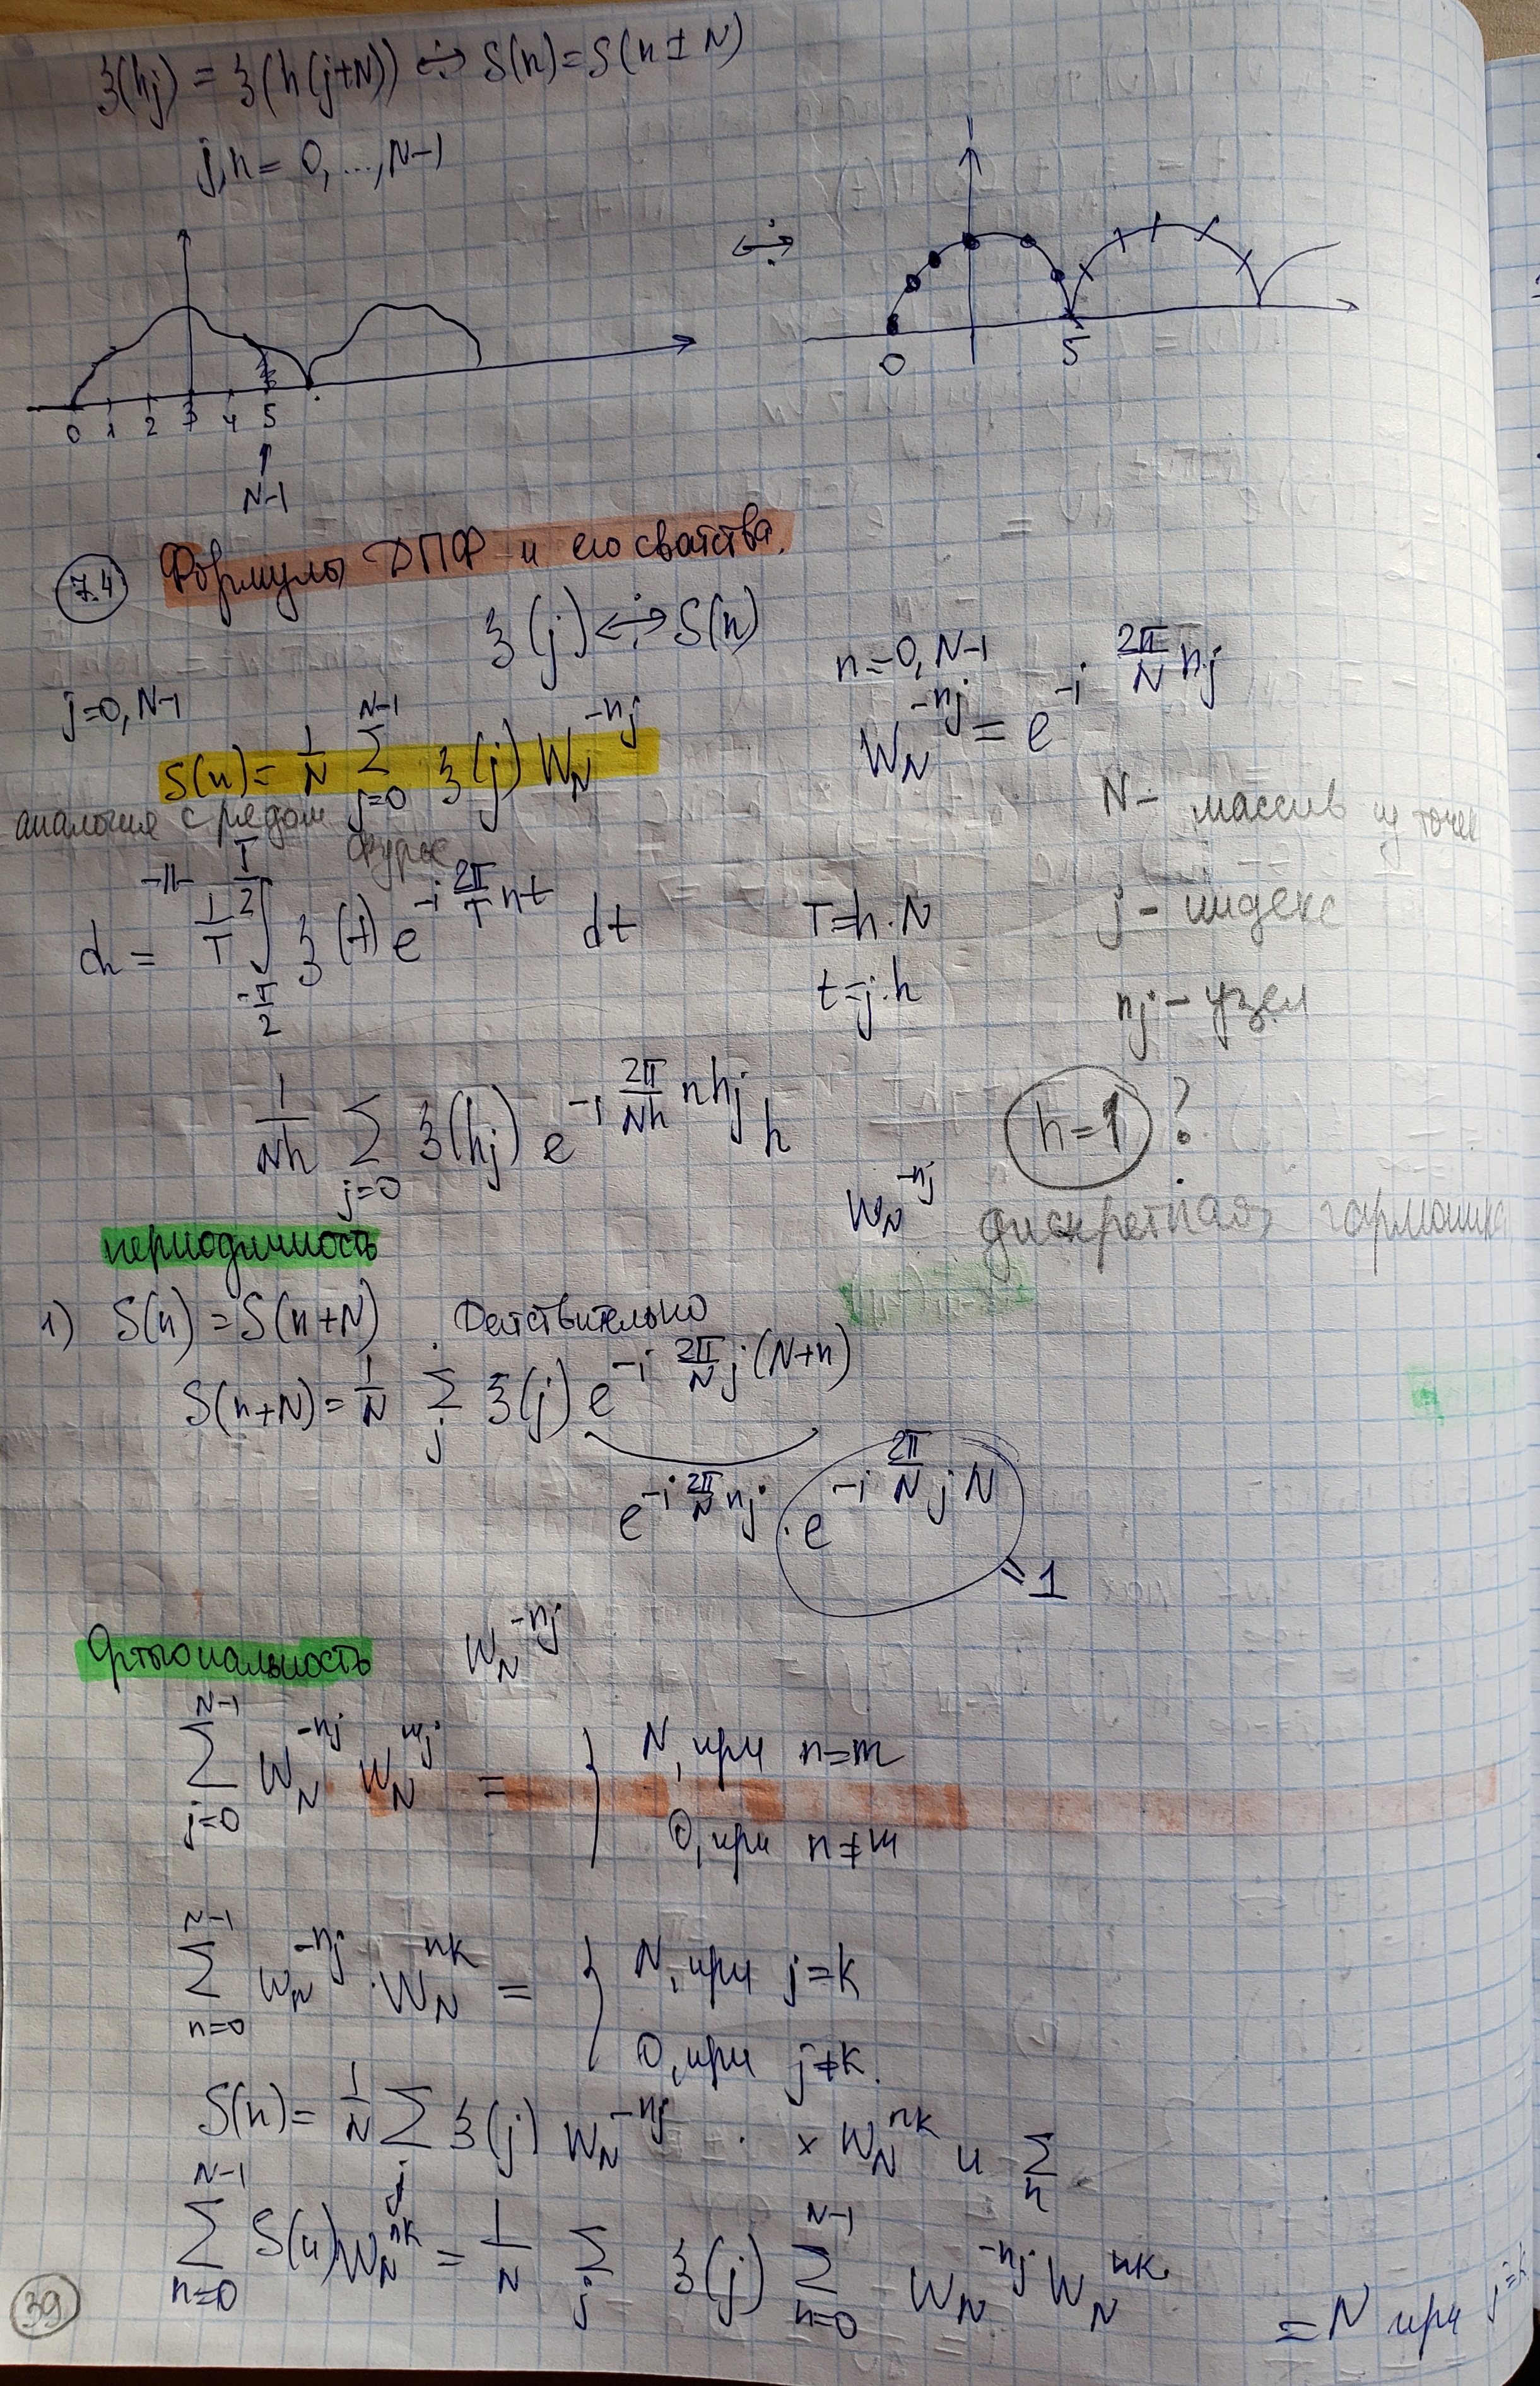 ξ(hj) = ξ(h(j+N)) ↔ S(n)=S(n±N)
j,n = 0,...,N-1
↔
0 1 2 3 4 5
N-1
0 5
7.4 Формулы ДПФ и его свойства.
ξ(j) ↔ S(n)
j=0,N-1
n=0,N-1
S(n)= 1/N Σ_{j=0}^{N-1} ξ(j) W_N^{-nj}
W_N^{-nj} = e^{-i 2π/N nj}
аналогия с рядом Фурье
N - массив из точек
-||-
dn = 1/T ∫_{-T/2}^{T/2} ξ(t) e^{-i 2π/T nt} dt
T=h·N
j - индекс
t=j·h
nj - узел
1/(Nh) Σ_{j=0} ξ(hj) e^{-i 2π/(Nh) nhj} h
h=1 ?
W_N^{-nj} дискретная гармоника
периодичность
1) S(n)=S(n+N) Действительно
S(n+N)= 1/N Σ_j ξ(j) e^{-i 2π/N j(N+n)}
e^{-i 2π/N nj} · e^{-i 2π/N jN} = 1
Ортогональность W_N^{-nj}
Σ_{j=0}^{N-1} W_N^{-nj} W_N^{mj} = } N, при n=m
0, при n≠m
Σ_{n=0}^{N-1} W_N^{-nj} · W_N^{nk} = } N, при j=k
0, при j≠k.
S(n)= 1/N Σ_j ξ(j) W_N^{-nj} · × W_N^{nk} и Σ_n
Σ_{n=0}^{N-1} S(n) W_N^{nk} = 1/N Σ_j ξ(j) Σ_{n=0}^{N-1} W_N^{-nj} W_N^{nk}
= N при j=k
39